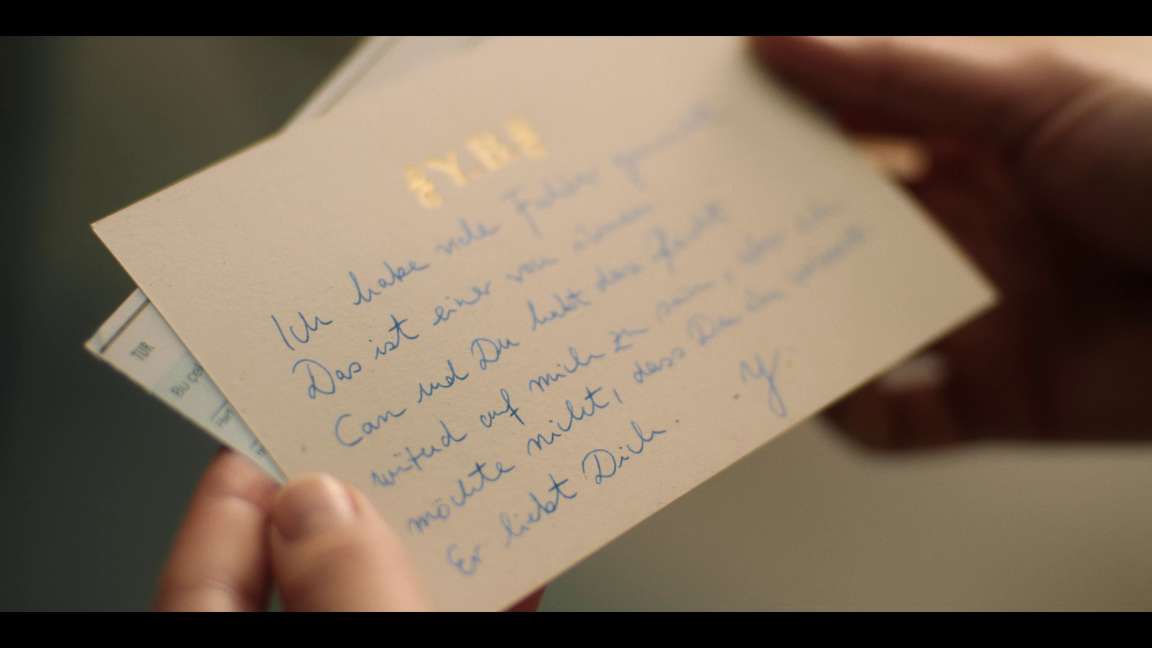 Y.B
Ich habe viele Fehler gemacht
Das ist einer von ihnen
Can und Du habt das Recht
wütend auf mich zu sein, aber ich
möchte nicht, dass Du ihn
Er liebt Dich. Y.
TÜR